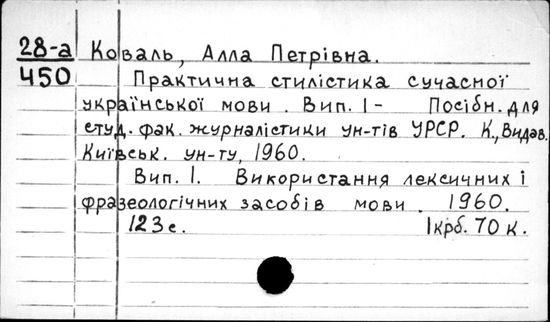 28-а
450
Коваль, Алла Петрівна.
Практична стилістика сучасної
української мови. Вип. 1- Посібн. для
студ. фак. журналістики ун-тів УРСР. К., Видав.
Київськ. ун-ту, 1960.
Вип. 1. Використання лексичних і
фразеологічних засобів мови. 1960.
123 с. 1крб. 70 к.